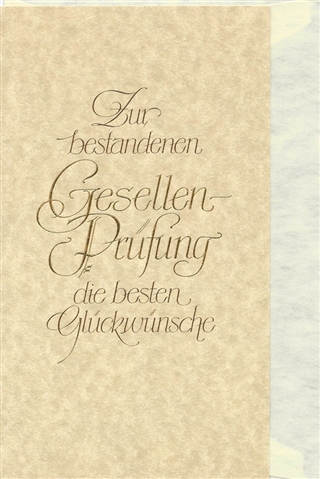 Zur
bestandenen
Gesellen-
Prüfung
die besten
Glückwünsche